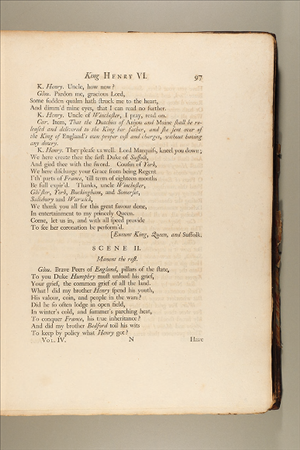 King HENRY VI. 97
K. Henry. Uncle, how now?
Glou. Pardon me, gracious Lord,
Some sudden qualm hath struck me to the heart,
And dimm'd mine eyes, that I can read no further.
K. Henry. Uncle of Winchester, I pray, read on.
Car. Item, That the Dutchies of Anjou and Maine shall be re-
leased and delivered to the King her father, and she sent over of
the King of England's own proper cost and charges, without having
any dowry.
K. Henry. They please us well. Lord Marquess, kneel you down;
We here create thee the first Duke of Suffolk,
And gird thee with the sword. Cousin of York,
We here discharge your Grace from being Regent
I' th' parts of France, 'till term of eighteen months
Be full expir'd. Thanks, uncle Winchester,
Glo'ster, York, Buckingham, and Somerset,
Salisbury and Warwick,
We thank you all for this great favour done,
In entertainment to my princely Queen.
Come, let us in, and with all speed provide
To see her coronation be perform'd.
[Exeunt King, Queen, and Suffolk.
SCENE II.
Manent the rest.
Glou. Brave Peers of England, pillars of the state,
To you Duke Humphry must unload his grief,
Your grief, the common grief of all the land.
What! did my brother Henry spend his youth,
His valour, coin, and people in the wars?
Did he so often lodge in open field,
In winter's cold, and summer's parching heat,
To conquer France, his true inheritance?
And did my brother Bedford toil his wits
To keep by policy what Henry got?
VOL. IV. N Have